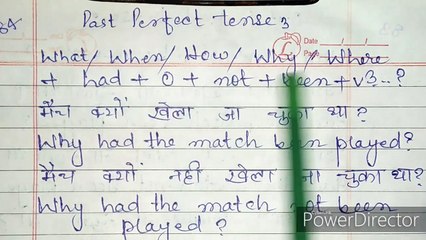 Past Perfect tense :
Date
What / When / How / Why / Where
+ had + O + not + been + v3 .. ?
मैच क्यों खेला जा चुका था ?
Why had the match been played?
मैच क्यों नहीं खेला जा चुका था?
Why had the match not been
played ?
PowerDirector